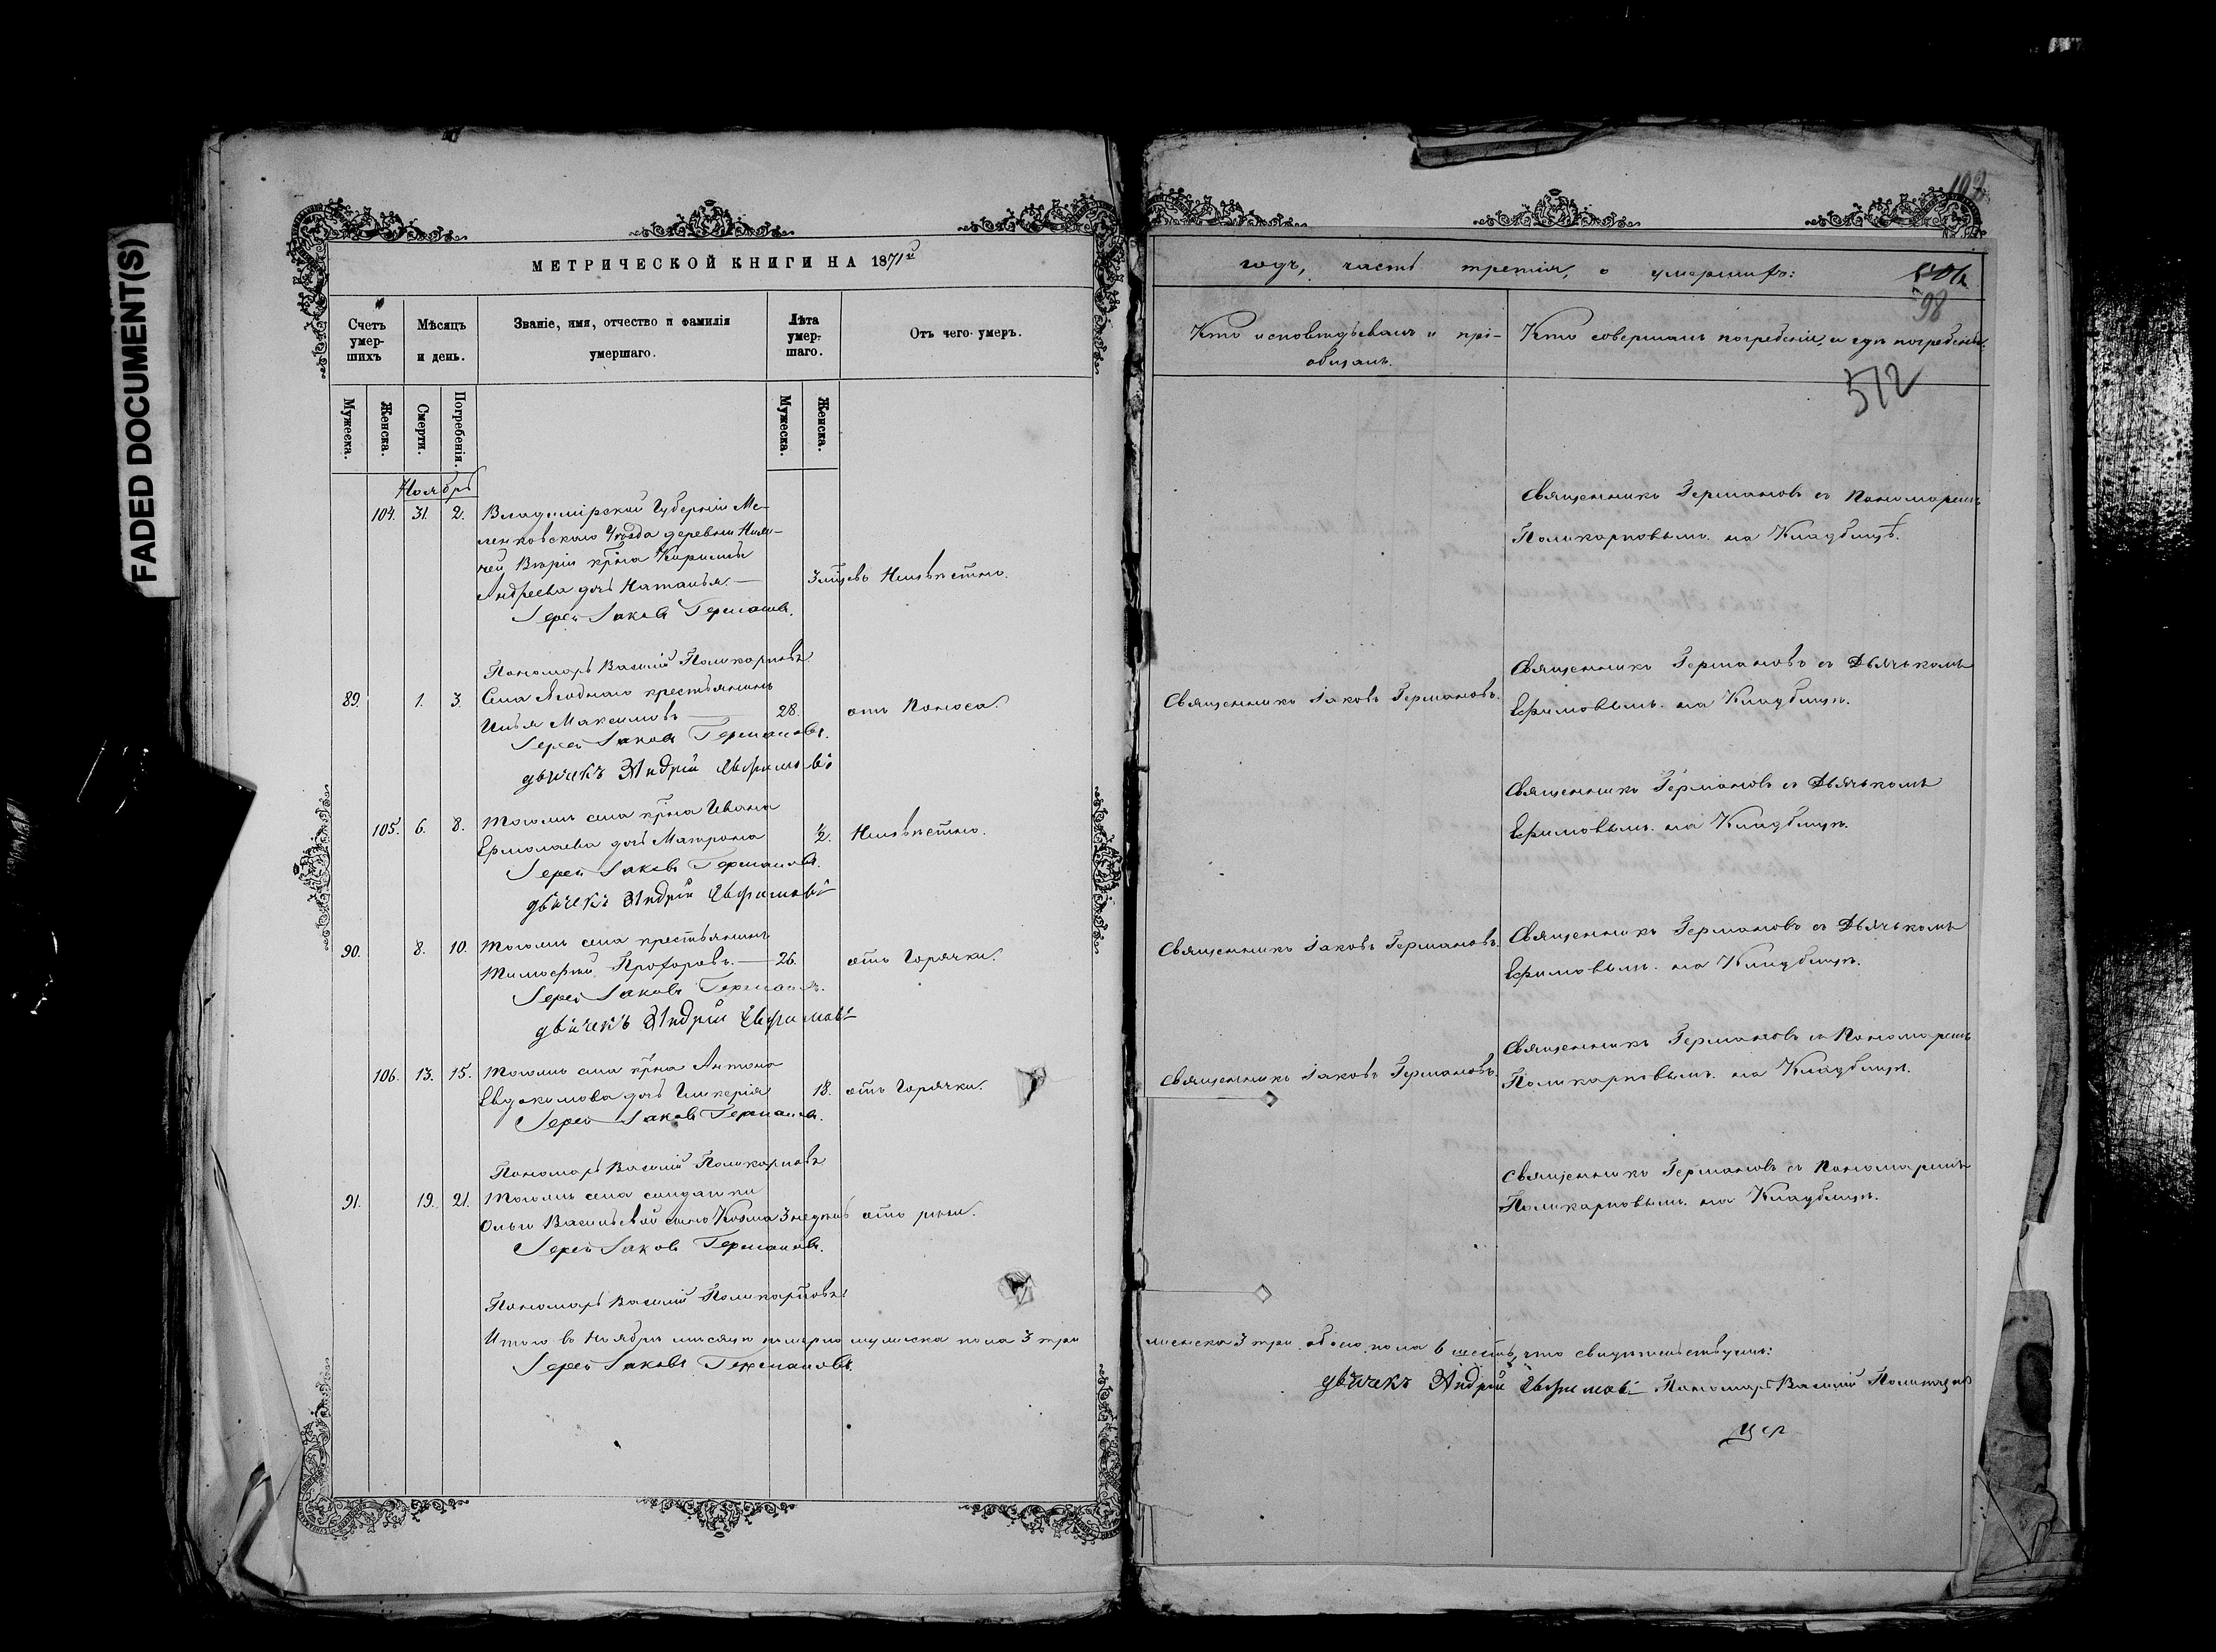 FADED DOCUMENT(S)
МЕТРИЧЕСКОЙ КНИГИ НА 1871й
Счетъ умер-шихъ
Мѣсяцъ и день.
Званіе, имя, отчество и фамилія умершаго.
Лѣта умер-шаго.
Отъ чего умеръ.
Мужеска.
Женска.
Смерти.
Погребенія.
Мужеска.
Женска.
Ноябрь
104. 31. 2. Владимірской Губерніи Ме-
ленковскаго Уѣзда деревни
Кирилы
Андреева дочь Наталья
Неизвѣстно.
Іерей Іаковъ Германовъ.
Пономарь Василій Поликарповъ
89. 1. 3. Села Ягоднаго крестьянинъ
Илья Максимовъ 28. отъ Поноса.
Іерей Іаковъ Германовъ.
дьячекъ Андрей Ефимовъ
105. 6. 8. Тогожъ села кр̃на Ивана
Ермолаева дочь Матрона ½. Неизвѣстно.
Іерей Іаковъ Германовъ.
дьячекъ Андрей Ефимовъ
90. 8. 10. Тогожъ села крестьянинъ
Тимофей Прохоровъ. 26. отъ Горячки.
Іерей Іаковъ Германовъ.
дьячекъ Андрей Ефимовъ
106. 13. 15. Тогожъ села кр̃на Антона
Евдокимова дочь Гликерія 18. отъ Горячки.
Іерей Іаковъ Германовъ.
Пономарь Василій Поликарповъ
91. 19. 21. Тогожъ села солдатки
Ольги Васильевой сынъ Козма 3 недѣль отъ
Іерей Іаковъ Германовъ.
Пономарь Василій Поликарповъ
Итого въ Ноябрѣ мѣсяцѣ померло мужеска пола 3 три
Іерей Іаковъ Германовъ.
103
годъ, часть третія, о умершихъ:
98
Кто исповѣдывалъ и прі-
общалъ.
Кто совершалъ погребеніе, и гдѣ погребены.
512
Священникъ Германовъ съ Пономаремъ
Поликарповымъ. на Кладбищѣ.
Священникъ Іаковъ Германовъ.
Священникъ Германовъ съ Дьячкомъ
Ефимовымъ. на Кладбищѣ.
Священникъ Германовъ съ Дьячкомъ
Ефимовымъ. на Кладбищѣ.
Священникъ Іаковъ Германовъ.
Священникъ Германовъ съ Дьячкомъ
Ефимовымъ. на Кладбищѣ.
Священникъ Іаковъ Германовъ.
Священникъ Германовъ съ Пономаремъ
Поликарповымъ. на Кладбищѣ.
Священникъ Германовъ съ Пономаремъ
Поликарповымъ. на Кладбищѣ.
женска 3 три обоего пола 6 шесть, что свидѣтельствуемъ:
дьячекъ Андрей Ефимовъ Пономарь Василій Поликарповъ